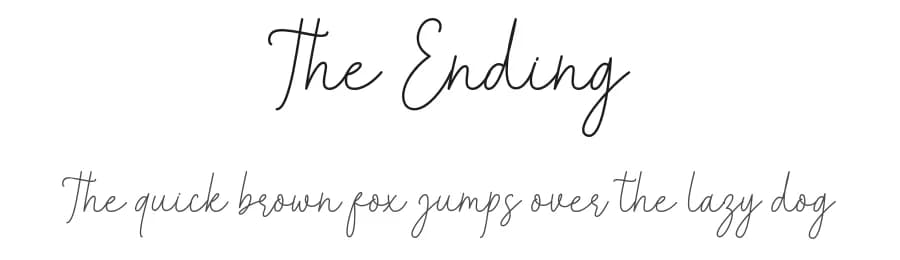 The Ending
The quick brown fox jumps over the lazy dog